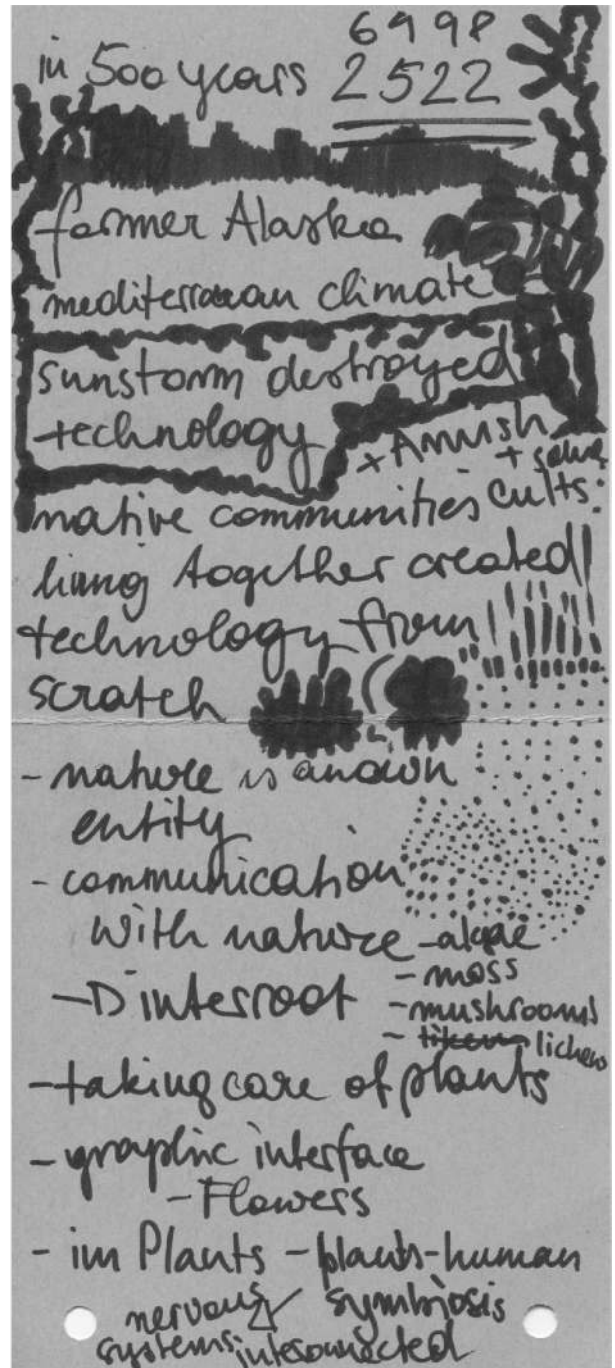 6998
in 500 years 2522
former Alaska
mediterranean climate
sunstorm destroyed
technology + Amish
+ some
native communities cults
living together created
technology from
scratch
- nature is an own
entity
- communication
with nature - algae
- moss
-D interroot - mushrooms
- lichens
- taking care of plants
- graphic interface
- Flowers
- im Plants - plants-human
nervous symbiosis
systems interconnected